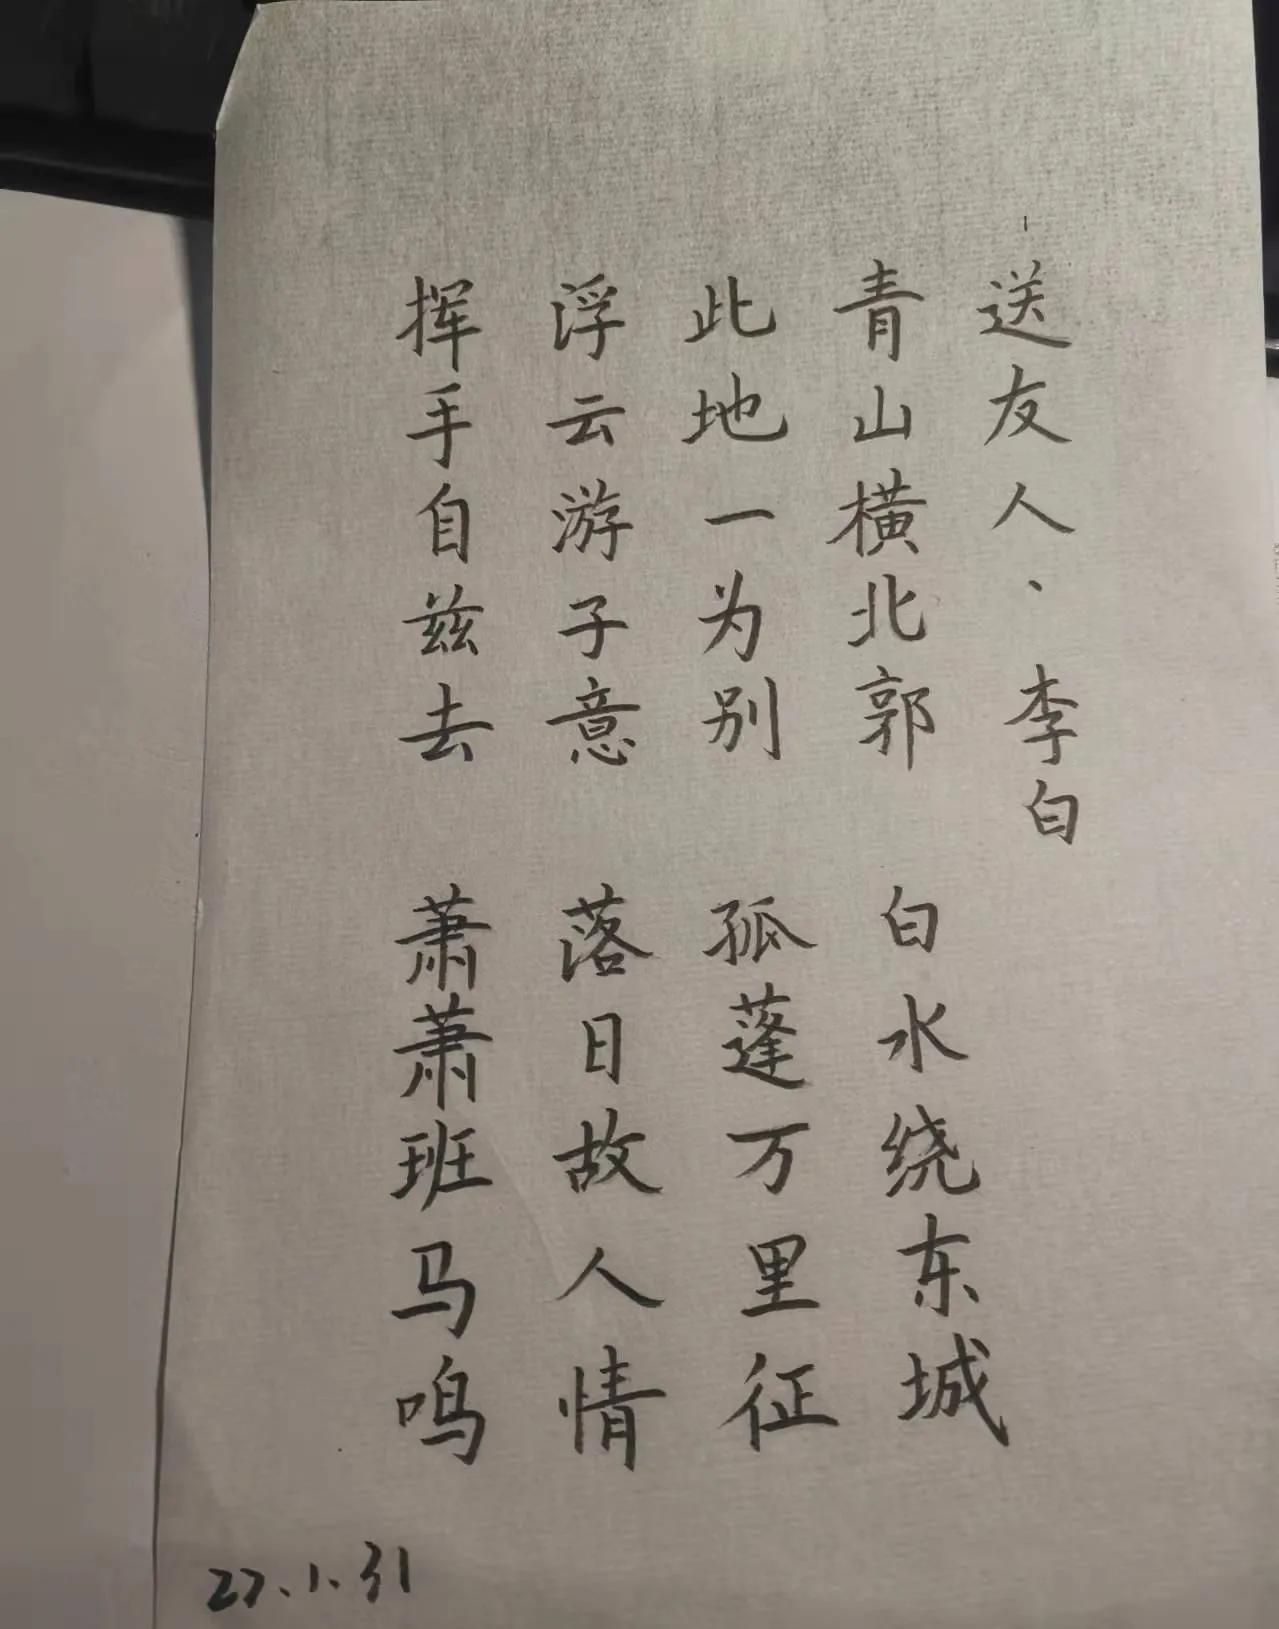 送友人·李白
青山横北郭 白水绕东城
此地一为别 孤蓬万里征
浮云游子意 落日故人情
挥手自兹去 萧萧班马鸣
22.1.31